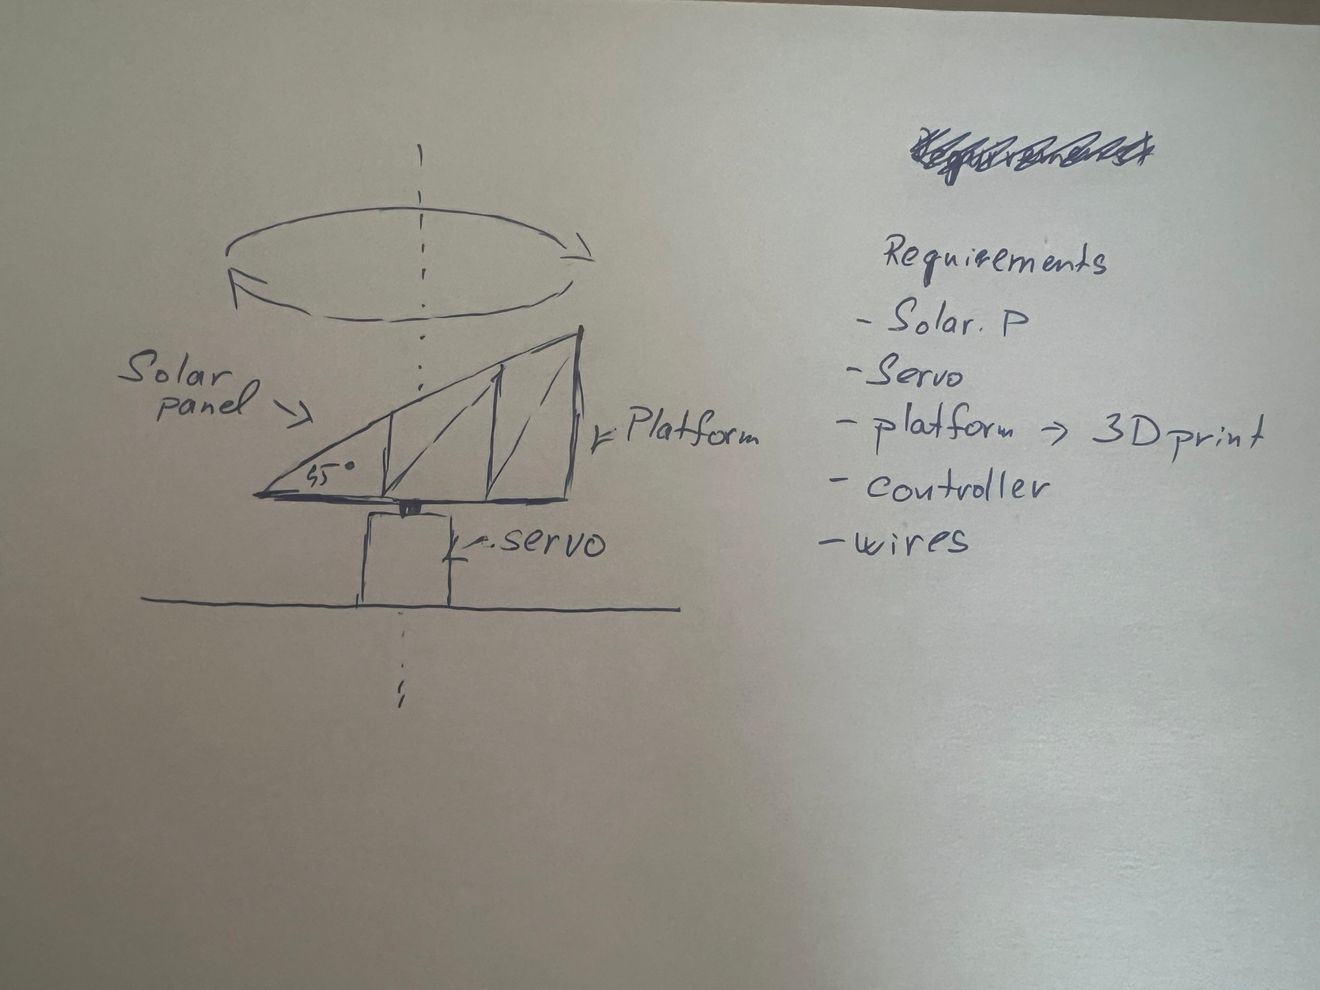 Requirements
Requirements
- Solar. P
- Servo
- platform → 3D print
- controller
- wires
Solar
panel
45°
Platform
servo